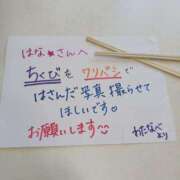 はな★さんへ
ちくびをワリバシで
はさんだ写真撮らせて
ほしいです♡
お願いします☺
わたなべ
より